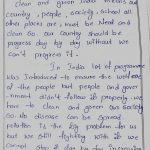 Clean and given India means our
country, people, society, school all
other places are, must be Neat and
clean So our country should be
progress day by day without we
can't progress it.
In India lot of programme
was Introduced to ensure the welfare
of the people but people and gover
-nment didn't follow it properly we
have to clean and gover our Society
So. No disease can be Spread
polution is the big problem do us
but we Still fighting with it we
day by day